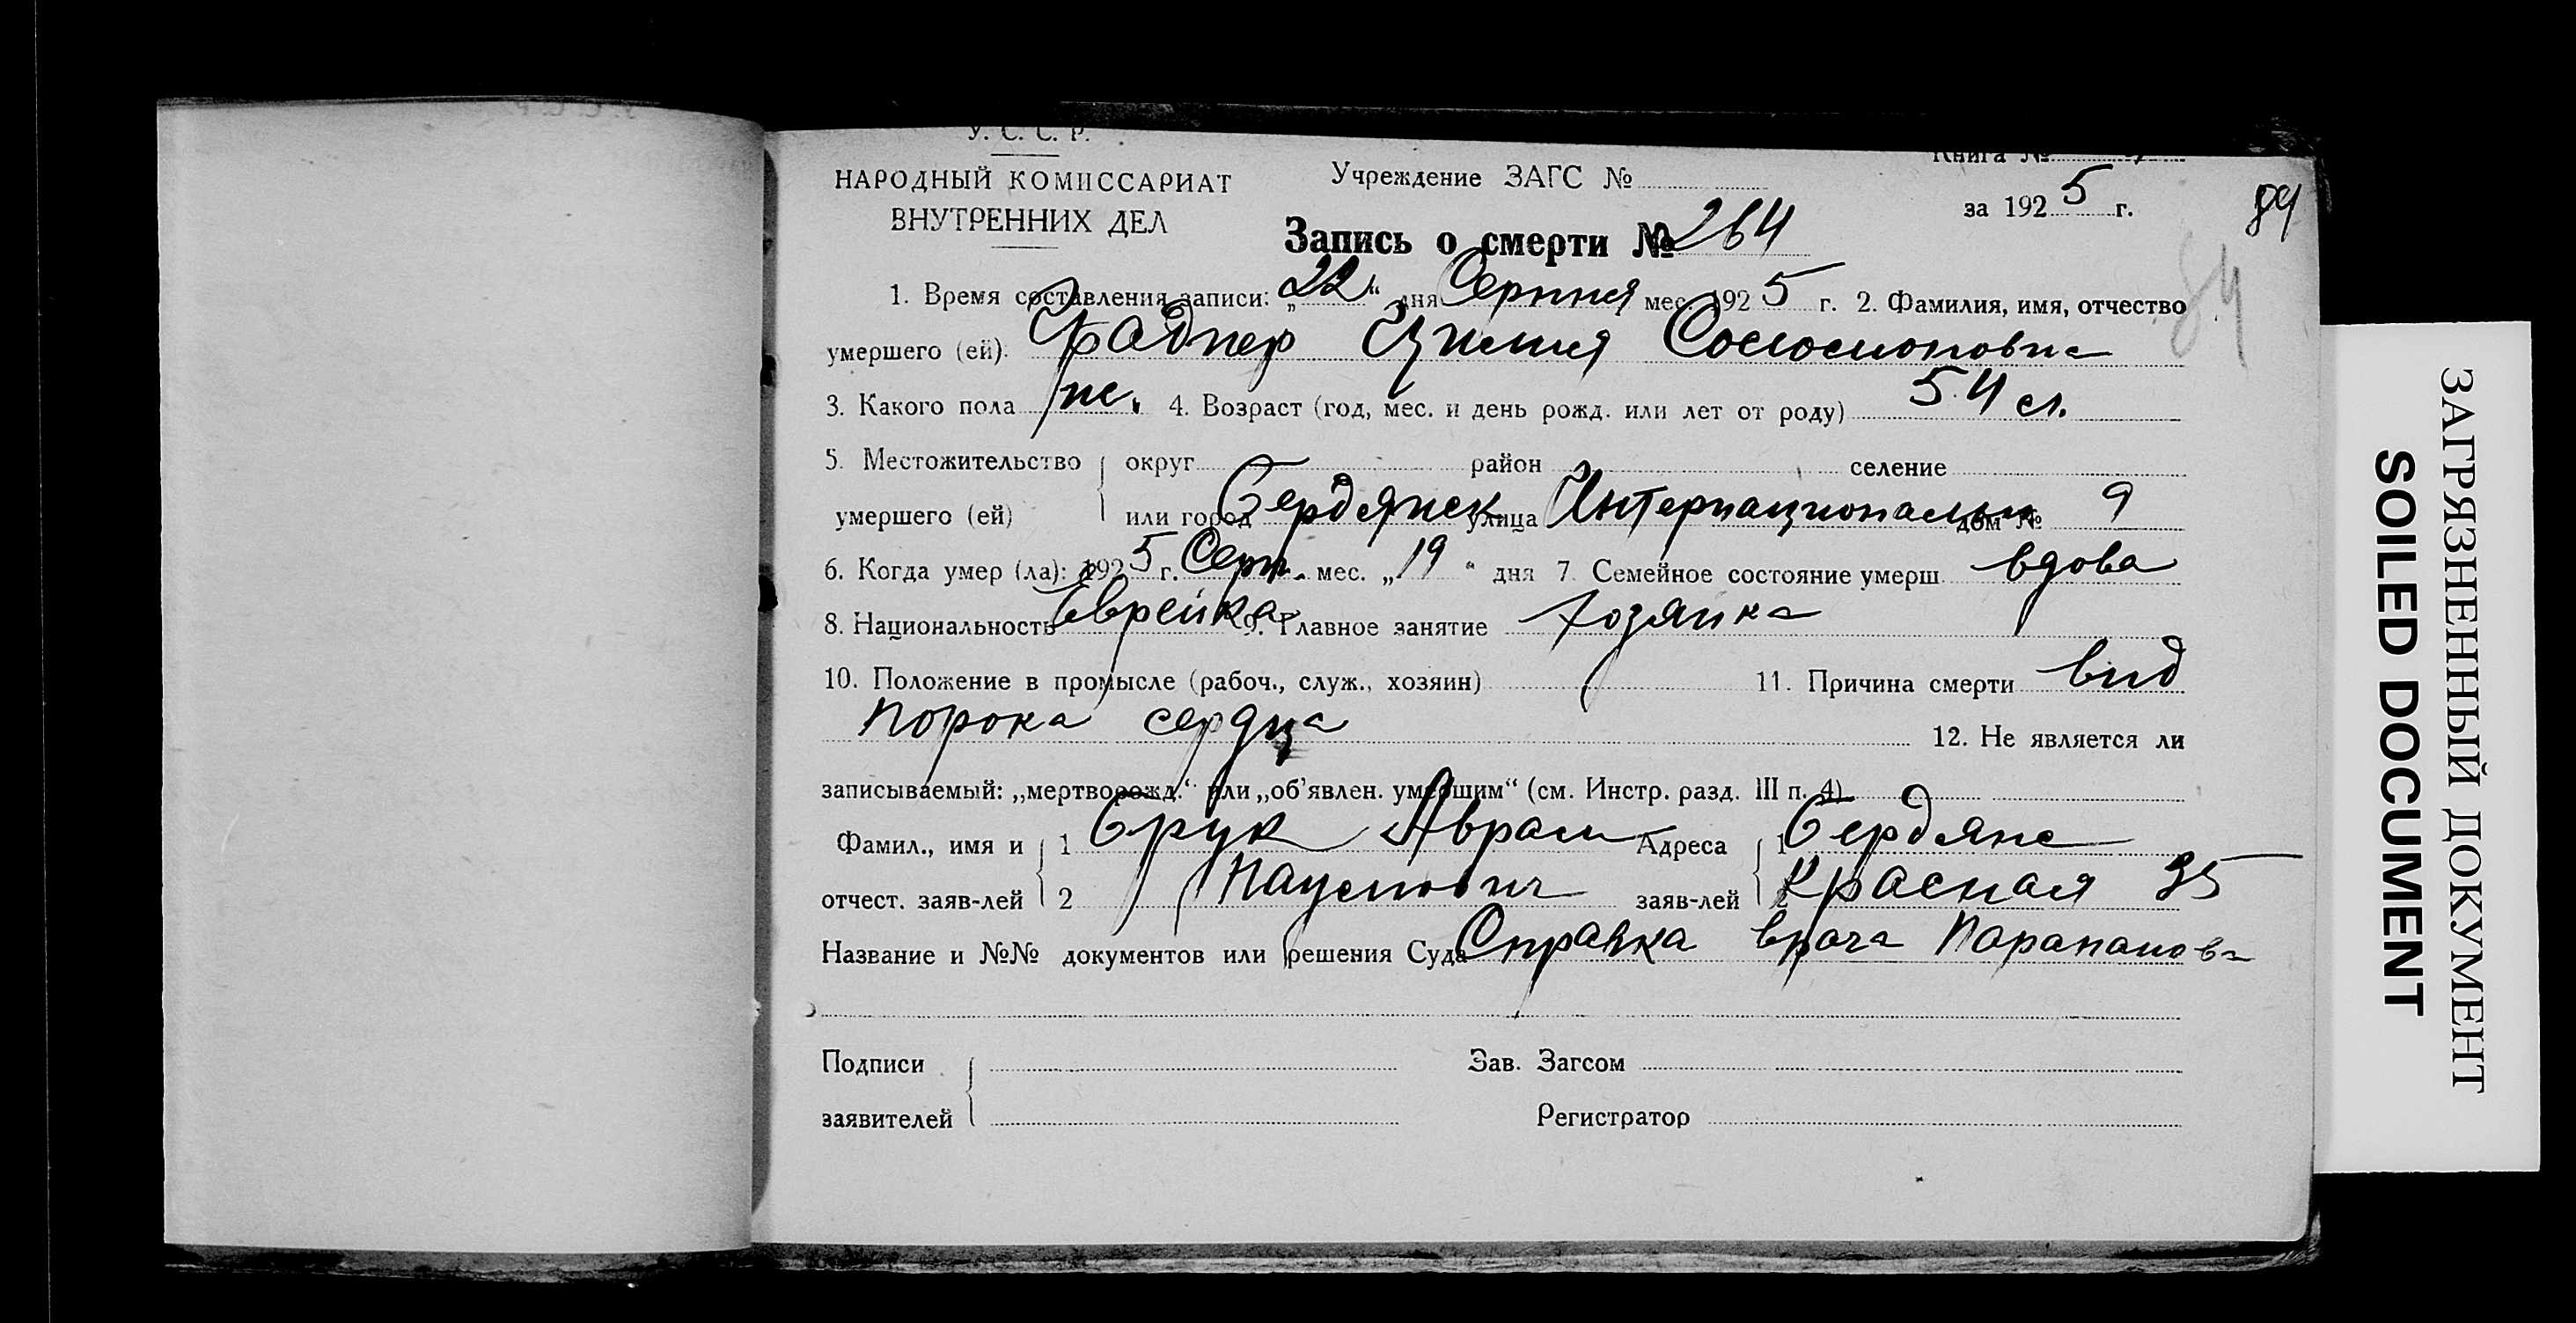 У. С. С. Р.
НАРОДНЫЙ КОМИССАРИАТ
ВНУТРЕННИХ ДЕЛ
Учреждение ЗАГС №
Книга №
за 1925 г.
84
84
Запись о смерти № 264
1. Время составления записи: „22“ дня Серпня мес. 1925 г. 2. Фамилия, имя, отчество
умершего (ей). Цилия Соломоновна
3. Какого пола ж. 4. Возраст (год, мес. и день рожд. или лет от роду) 54 л.
5. Местожительство округ район селение
умершего (ей) или город Бердянск улица Интернациональн дом № 9
6. Когда умер (ла): 1925 г. Серп. мес. „19“ дня 7. Семейное состояние умерш. вдова
8. Национальность Еврейка 9. Главное занятие хозяйка
10. Положение в промысле (рабоч., служ., хозяин) 11. Причина смерти від
порока сердца 12. Не является ли
записываемый: „мертворожд.“ или „об'явлен. умершим“ (см. Инстр. разд. III п. 4)
Фамил., имя и 1 Брук Абрам Адреса 1 Бердянс
отчест. заяв-лей 2 Наумович заяв-лей Красная 35
Название и №№ документов или решения Суда Справка врача
Подписи Зав. Загсом
заявителей Регистратор
ЗАГРЯЗНЕННЫЙ ДОКУМЕНТ
SOILED DOCUMENT